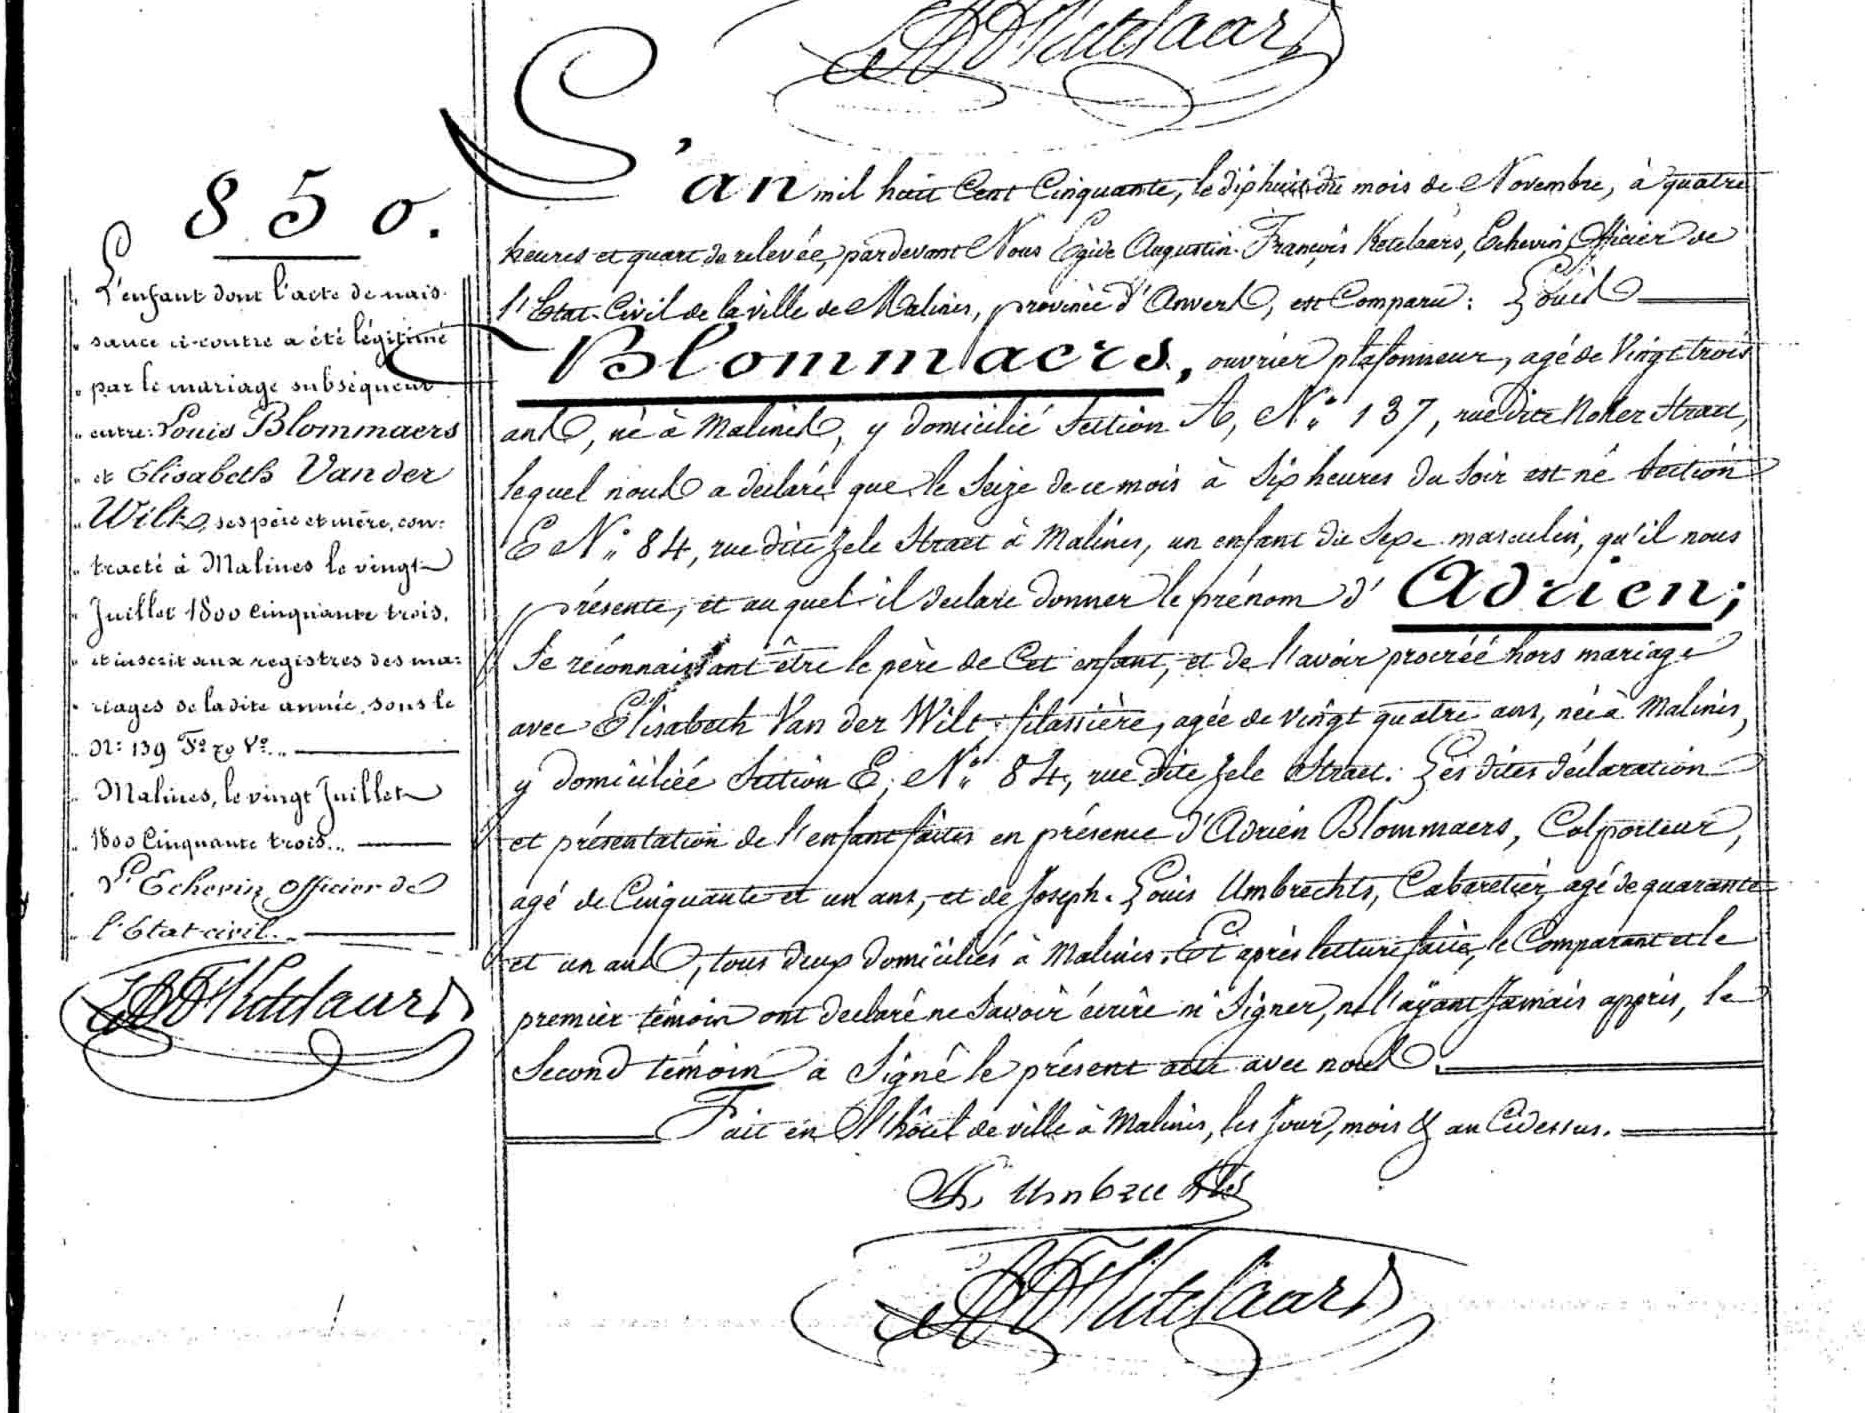 850.
L'enfant dont l'acte de nais-
sance ci-contre a été légitimé
par le mariage subséquent
entre: Louis Blommaers
et Elisabeth Van der
Wilt, ses père et mère, con:
tracté à Malines le vingt
Juillet 1800 cinquante trois,
et inscrit aux registres des ma:
riages de la dite année, sous le
N: 139 Fo 70 Vo..
Malines, le vingt Juillet
1800 Cinquante trois...
L'Echevin officier de
l'Etat-civil..
Ketelaars
Ketelaars
L'an mil huit Cent Cinquante, le dix huit du mois de Novembre, à quatre
heures et quart de relevée, pardevant Nous Egide Augustin François Ketelaars, Echevin, Officier de
l'Etat-Civil de la ville de Malines, province d'Anvers, est Comparu: Louis
Blommaers, ouvrier plafonneur, agé de Vingt trois
ans, né à Malines, y domicilié Section A, No 137, rue dite Noker Straet,
lequel nous a declaré que le Seize de ce mois à Six heures du Soir est né Section
E No 84, rue dite Zele Straet à Malines, un enfant du Sexe masculin, qu'il nous
présente, et auquel il declare donner le prénom d'Adrien;
Se réconnaissant être le père de Cet enfant, et de l'avoir procréé hors mariage
avec Elisabeth Van der Wilt, filassière, agée de vingt quatre ans, née à Malines,
y domiciliée Section E, No 84, rue dite Zele Straet. Les dites déclaration
et présentation de l'enfant faites en présence d'Adrien Blommaers, Colporteur,
agé de Cinquante et un ans, et de Joseph Louis Umbrechts, Cabaretier, agé de quarante
et un ans, tous deux domiciliés à Malines. Et après lecture faite, le Comparant et le
premier témoin ont declaré ne Savoir écrire ni Signer, ne l'ayant Jamais appris, le
Second témoin a Signé le présent acte avec nous.
Fait en l'hôtel de ville à Malines, les Jour, mois & an Cidessus.
Umbrechts
Ketelaars